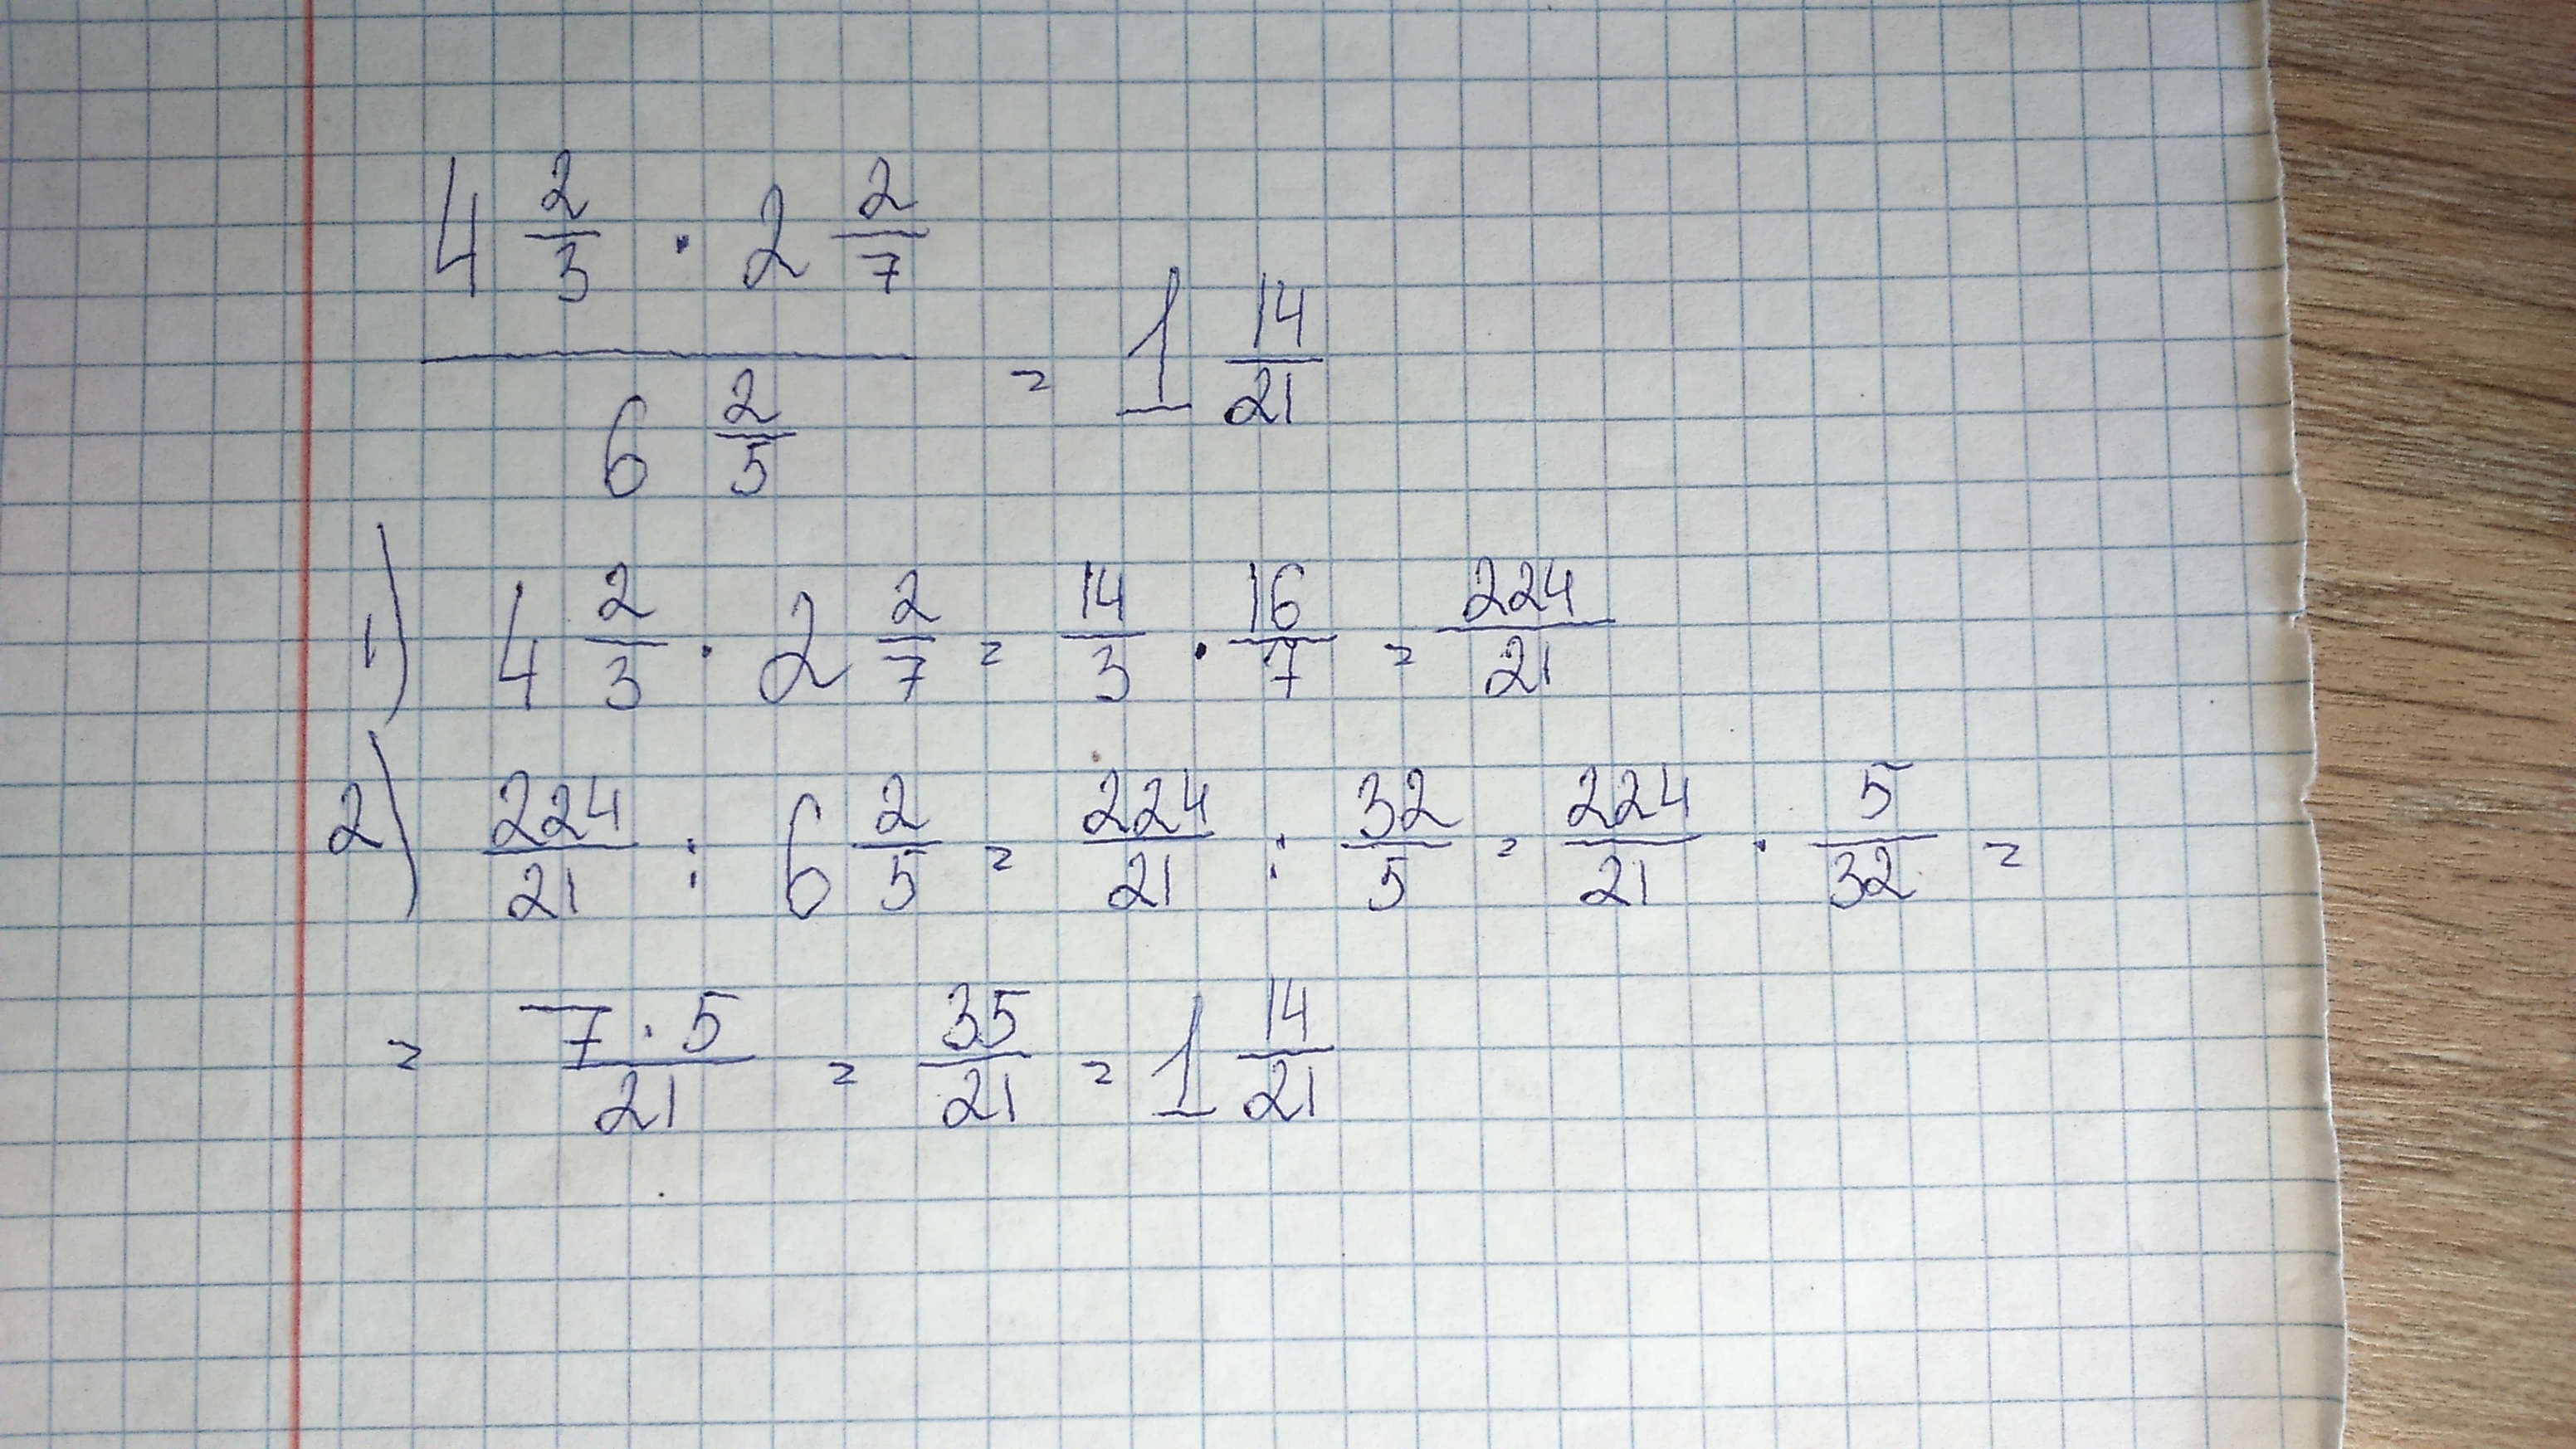 4 2/3 · 2 2/7
———————— = 1 14/21
6 2/5
1) 4 2/3 · 2 2/7 = 14/3 · 16/7 = 224/21
2) 224/21 : 6 2/5 = 224/21 : 32/5 = 224/21 · 5/32 =
= 7 · 5/21 = 35/21 = 1 14/21